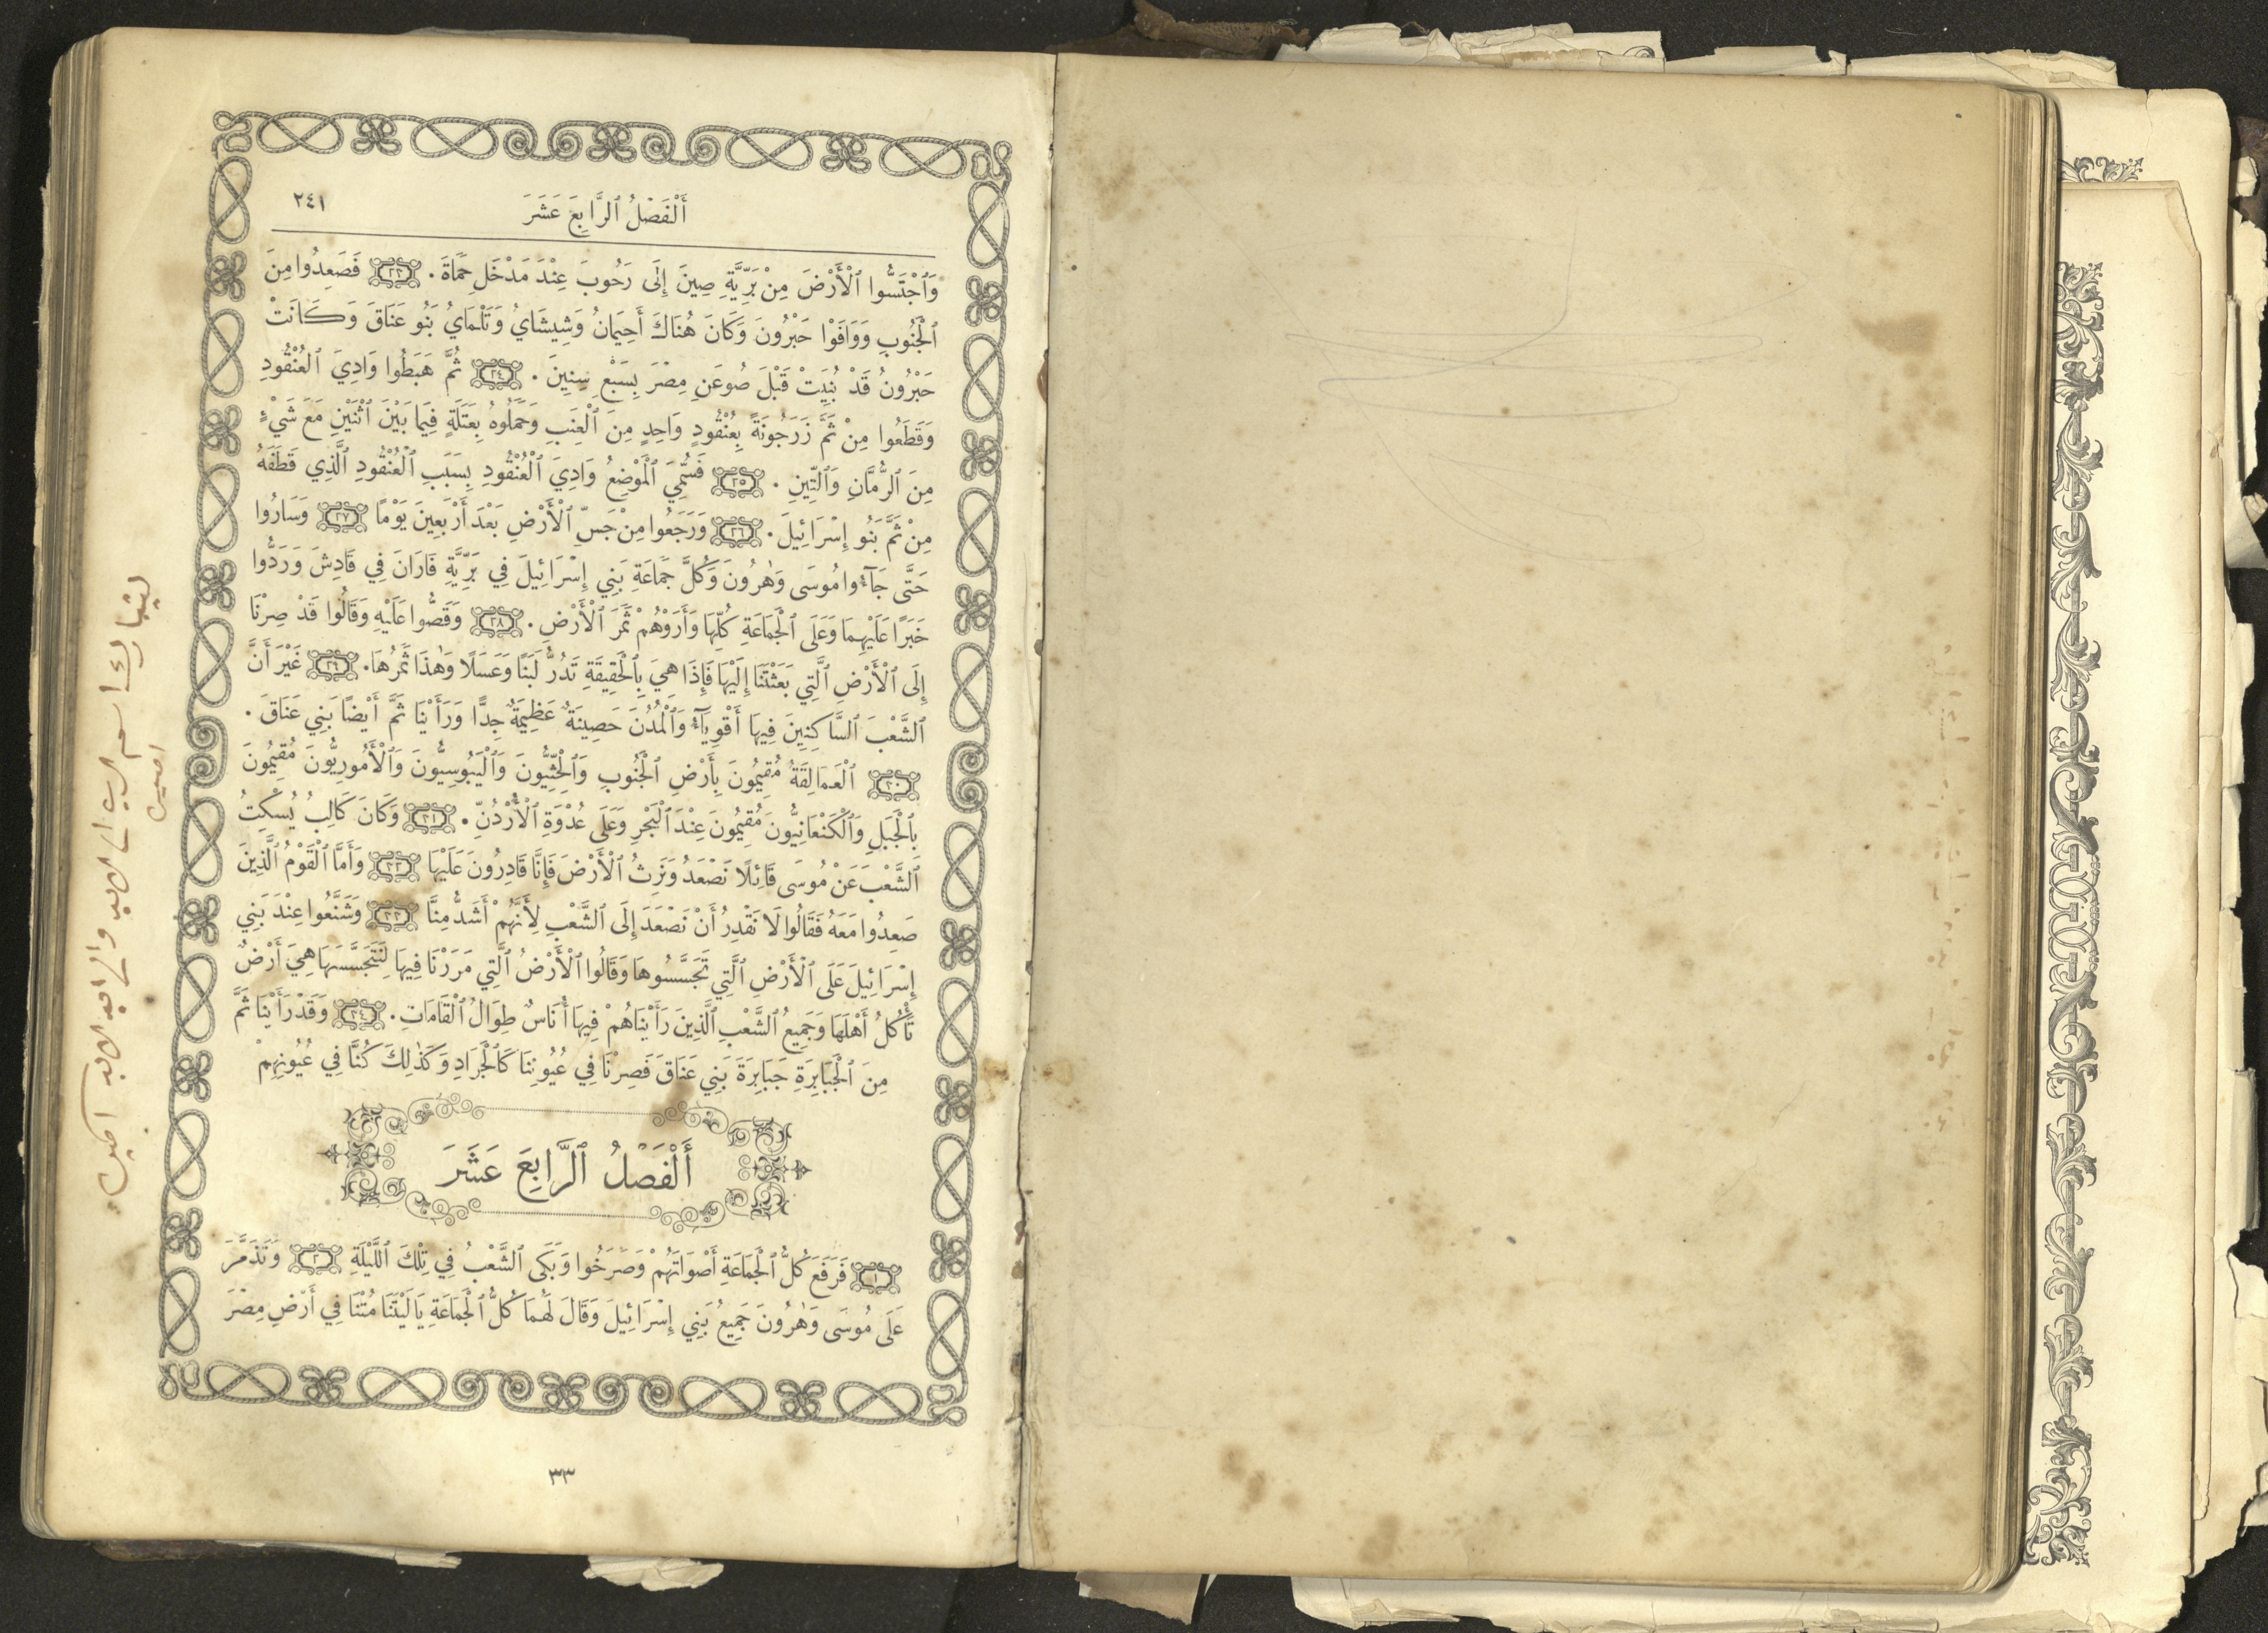 أَلْفَصْلُ ٱلرَّابِعَ عَشَرَ
٢٤١
وَٱجْتَسُّوا ٱلْأَرْضَ مِنْ بَرِّيَّةِ صِينَ إِلَى رَحُوبَ عِنْدَ مَدْخَلِ حَمَاةَ . ٢٣ فَصَعِدُوا مِنَ
ٱلْجَنُوبِ وَوَافَوْا حَبْرُونَ وَكَانَ هُنَاكَ أَحِيمَانُ وَشِيشَايُ وَتَلْمَايُ بَنُو عَنَاقَ وَكَانَتْ
حَبْرُونُ قَدْ بُنِيَتْ قَبْلَ صُوعَنِ مِصْرَ بِسَبْعِ سِنِينَ . ٢٤ ثُمَّ هَبَطُوا وَادِيَ ٱلْعُنْقُودِ
وَقَطَعُوا مِنْ ثَمَّ زَرَجُونَةً بِعُنْقُودٍ وَاحِدٍ مِنَ ٱلْعِنَبِ وَحَمَلُوهُ بِعَتَلَةٍ فِيمَا بَيْنَ ٱثْنَيْنِ مَعَ شَيْءٍ
مِنَ ٱلرُّمَّانِ وَٱلتِّينِ . ٢٥ فَسُمِّيَ ٱلْمَوْضِعُ وَادِيَ ٱلْعُنْقُودِ بِسَبَبِ ٱلْعُنْقُودِ ٱلَّذِي قَطَفَهُ
مِنْ ثَمَّ بَنُو إِسْرَائِيلَ . ٢٦ وَرَجَعُوا مِنْ جَسِّ ٱلْأَرْضِ بَعْدَ أَرْبَعِينَ يَوْمًا ٢٧ وَسَارُوا
حَتَّى جَآءُوا مُوسَى وَهٰرُونَ وَكُلَّ جَمَاعَةِ بَنِي إِسْرَائِيلَ فِي بَرِّيَّةِ فَارَانَ فِي قَادِشَ وَرَدُّوا
خَبَرًا عَلَيْهِمَا وَعَلَى ٱلْجَمَاعَةِ كُلِّهَا وَأَرَوْهُمْ ثَمَرَ ٱلْأَرْضِ . ٢٨ وَقَصُّوا عَلَيْهِ وَقَالُوا قَدْ صِرْنَا
إِلَى ٱلْأَرْضِ ٱلَّتِي بَعَثْتَنَا إِلَيْهَا فَإِذَا هِيَ بِٱلْحَقِيقَةِ تَدُرُّ لَبَنًا وَعَسَلًا وَهٰذَا ثَمَرُهَا . ٢٩ غَيْرَ أَنَّ
ٱلشَّعْبَ ٱلسَّاكِنِينَ فِيهَا أَقْوِيَآءُ وَٱلْمُدُنَ حَصِينَةٌ عَظِيمَةٌ جِدًّا وَرَأَيْنَا ثَمَّ أَيْضًا بَنِي عَنَاقَ .
٣٠ ٱلْعَمَالِقَةُ مُقِيمُونَ بِأَرْضِ ٱلْجَنُوبِ وَٱلْحِثِّيُّونَ وَٱلْيَبُوسِيُّونَ وَٱلْأَمُورِيُّونَ مُقِيمُونَ
بِٱلْجَبَلِ وَٱلْكَنْعَانِيُّونَ مُقِيمُونَ عِنْدَ ٱلْبَحْرِ وَعَلَى عُدْوَةِ ٱلْأُرْدُنِّ . ٣١ وَكَانَ كَالِبُ يُسْكِتُ
ٱلشَّعْبَ عَنْ مُوسَى قَائِلًا نَصْعَدُ وَنَرِثُ ٱلْأَرْضَ فَإِنَّا قَادِرُونَ عَلَيْهَا ٣٢ وَأَمَّا ٱلْقَوْمُ ٱلَّذِينَ
صَعِدُوا مَعَهُ فَقَالُوا لَا نَقْدِرُ أَنْ نَصْعَدَ إِلَى ٱلشَّعْبِ لِأَنَّهُمْ أَشَدُّ مِنَّا ٣٣ وَشَنَّعُوا عِنْدَ بَنِي
إِسْرَائِيلَ عَلَى ٱلْأَرْضِ ٱلَّتِي تَجَسَّسُوهَا وَقَالُوا ٱلْأَرْضُ ٱلَّتِي مَرَرْنَا فِيهَا لِنَتَجَسَّسَهَا هِيَ أَرْضٌ
تَأْكُلُ أَهْلَهَا وَجَمِيعُ ٱلشَّعْبِ ٱلَّذِينَ رَأَيْنَاهُمْ فِيهَا أُنَاسٌ طِوَالُ ٱلْقَامَاتِ . ٣٤ وَقَدْ رَأَيْنَا ثَمَّ
مِنَ ٱلْجَبَابِرَةِ جَبَابِرَةَ بَنِي عَنَاقَ فَصِرْنَا فِي عُيُونِنَا كَٱلْجَرَادِ وَكَذٰلِكَ كُنَّا فِي عُيُونِهِمْ
أَلْفَصْلُ ٱلرَّابِعَ عَشَرَ
١ فَرَفَعَ كُلُّ ٱلْجَمَاعَةِ أَصْوَاتَهُمْ وَصَرَخُوا وَبَكَى ٱلشَّعْبُ فِي تِلْكَ ٱللَّيْلَةِ ٢ وَتَذَمَّرَ
عَلَى مُوسَى وَهٰرُونَ جَمِيعُ بَنِي إِسْرَائِيلَ وَقَالَ لَهُمَا كُلُّ ٱلْجَمَاعَةِ يَا لَيْتَنَا مُتْنَا فِي أَرْضِ مِصْرَ
٣٣
ليتبارك اسم الرب الى الابد والى ابد الابد امين
امين